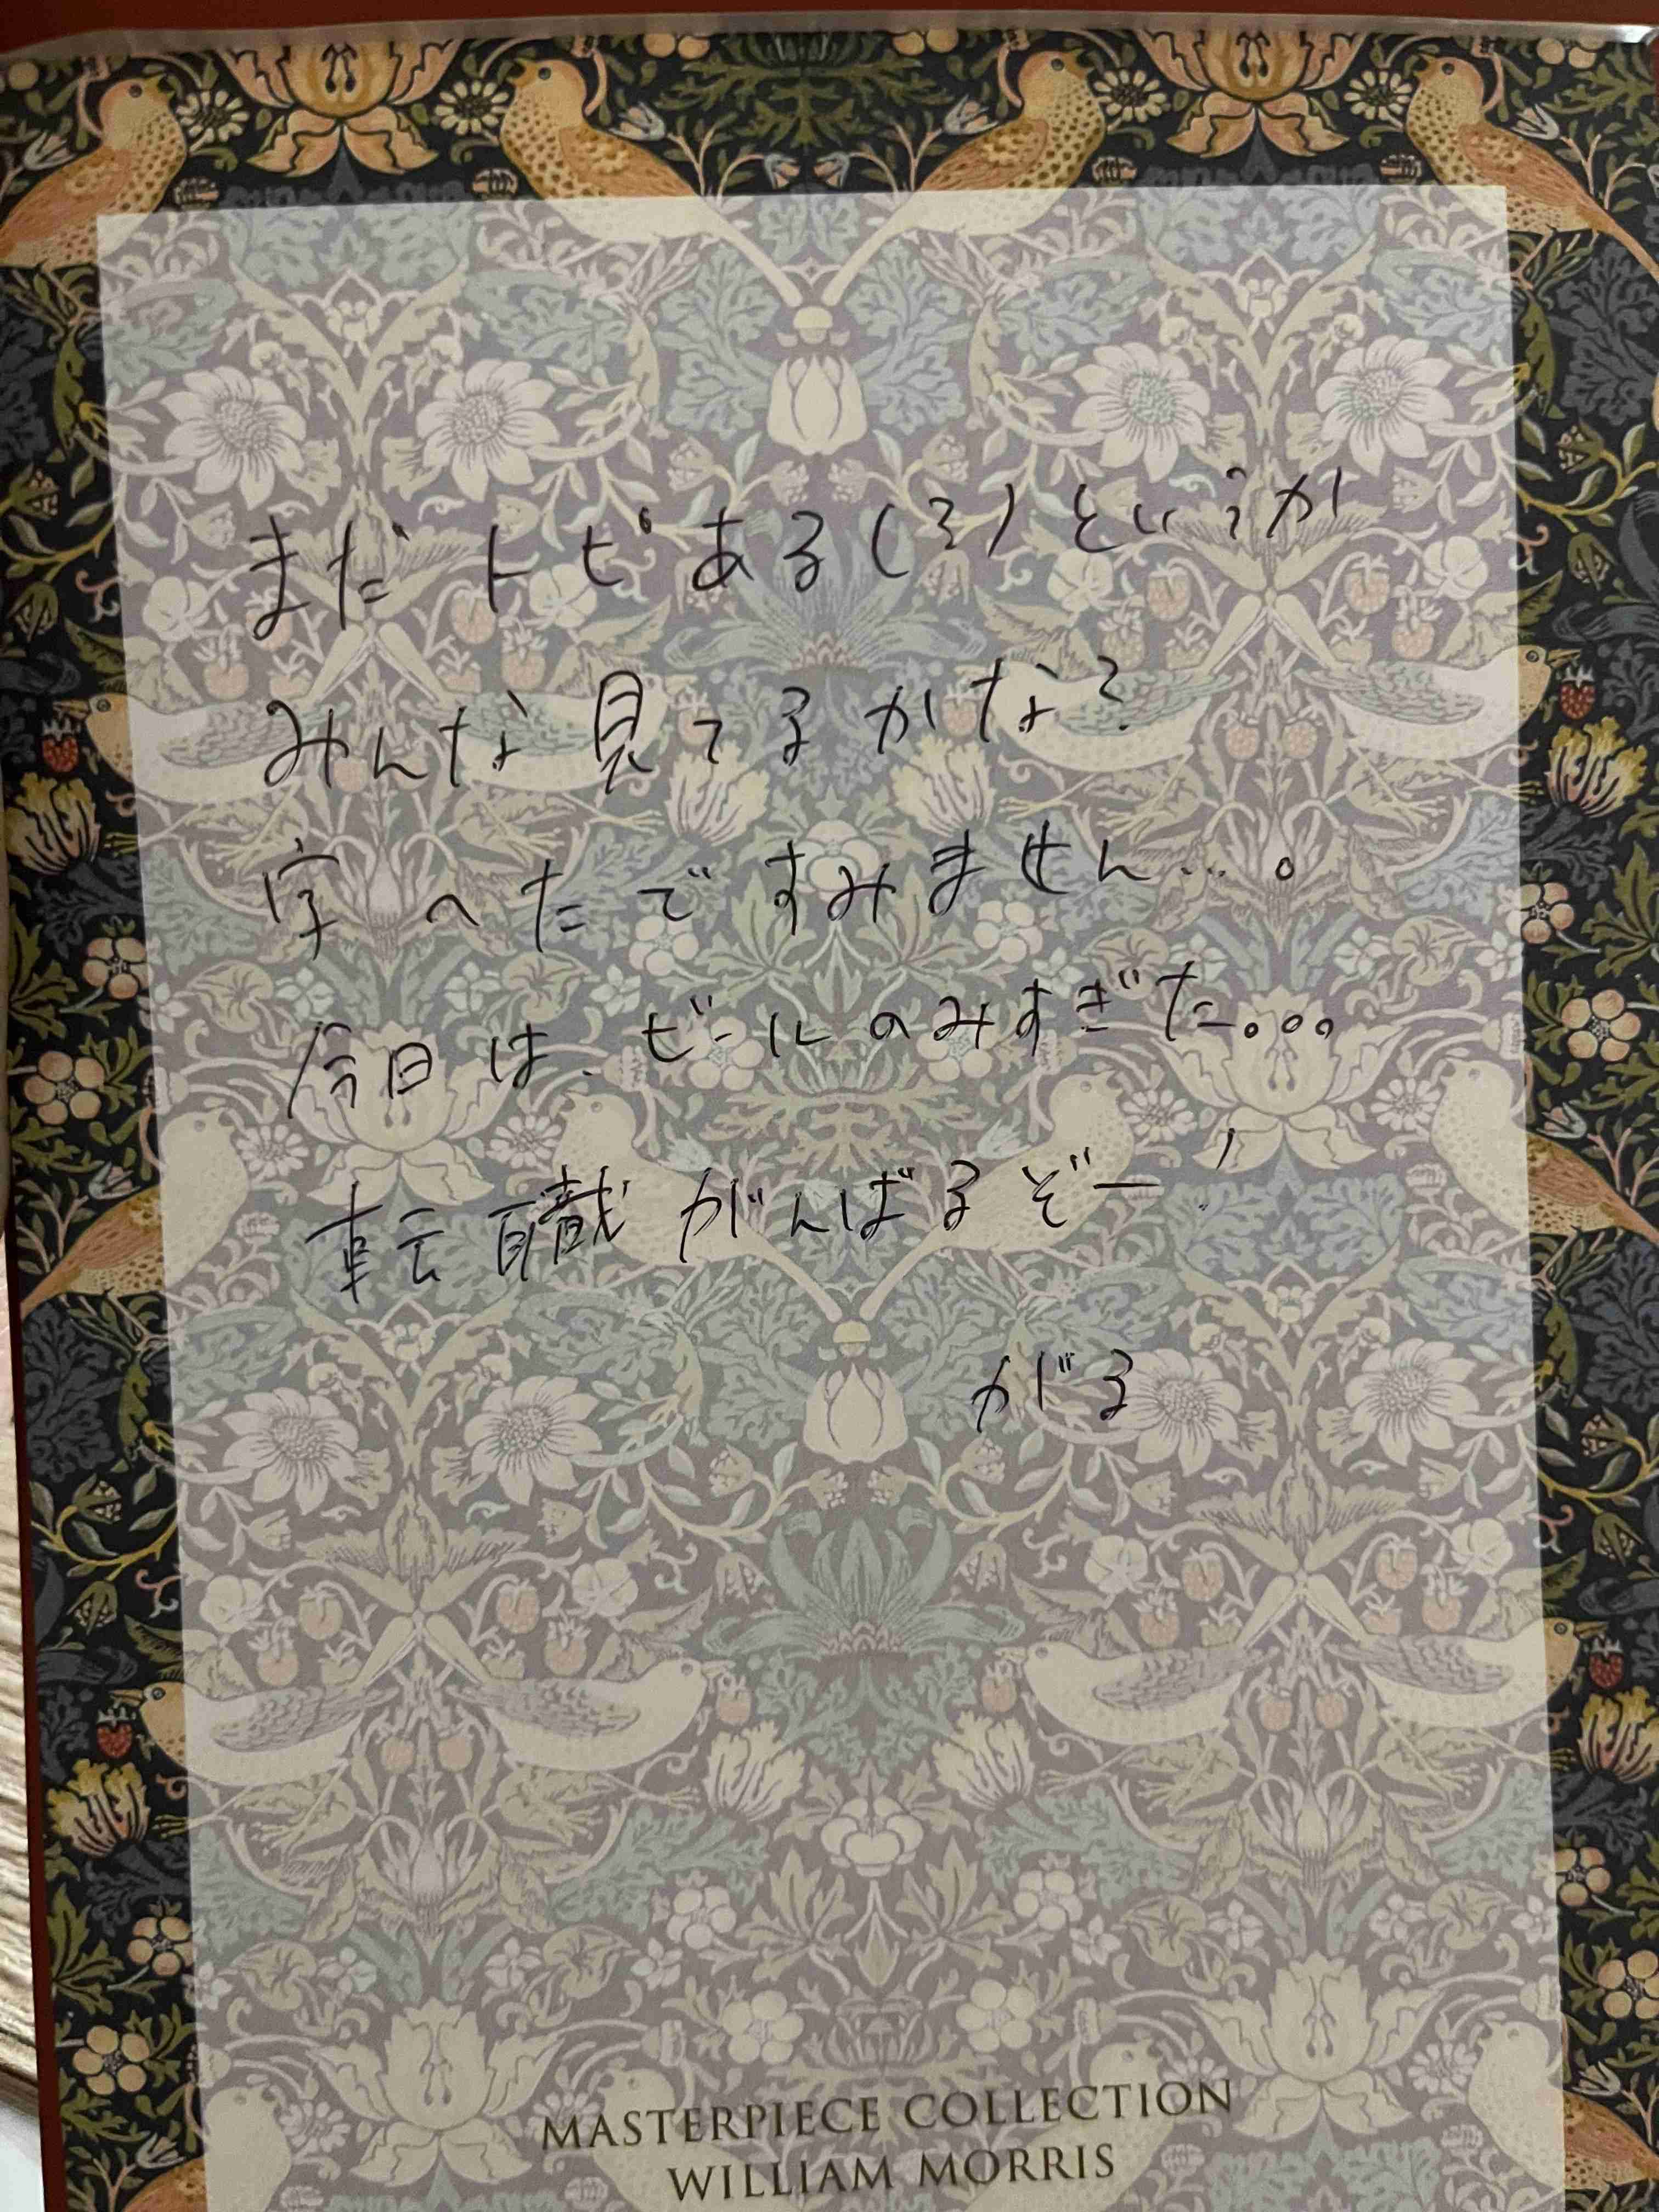 まだトピある(?)というか
みんな見てるかな?
字へたですみません…。
今日は、ビールのみすぎた。。。
転職がんばるぞー!
がる
MASTERPIECE COLLECTION
WILLIAM MORRIS